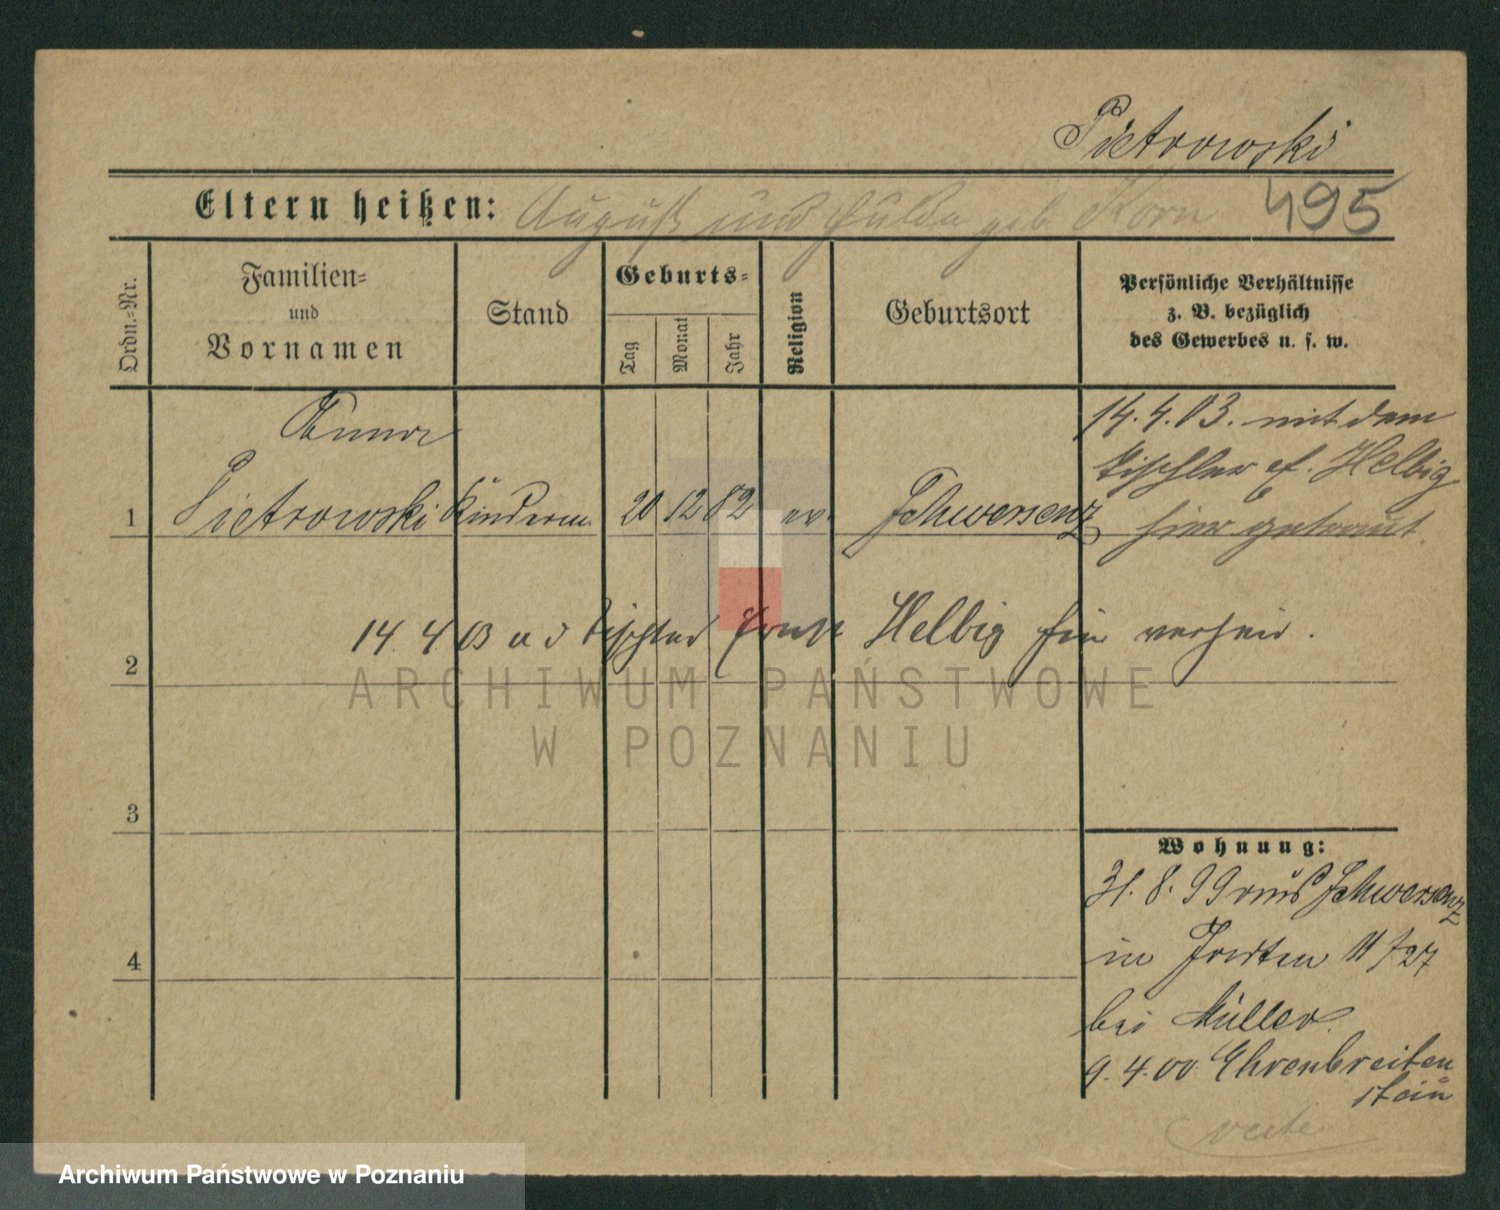 Pietrowski
Eltern heißen: August und Hulda geb Korn 495
Ordn.-Nr.
Familien-
und
Vornamen
Stand
Geburts-
Tag
Monat
Jahr
Religion
Geburtsort
Persönliche Verhältnisse
z. B. bezüglich
des Gewerbes u. s. w.
Anna
1 Pietrowski Kinderm. 20 12 82 ev. Schwersenz
14.4.03. mit dem
Tischler E. Helbig
hier getraut.
2 14. 4 03 a d Tischler Ernst Helbig hier verheir.
3
4
Wohnung:
31. 8. 99 aus Schwersenz
in 11 f 27
bei Müller.
9. 4. 00 Ehrenbreiten
stein
verte
ARCHIWUM PAŃSTWOWE
W POZNANIU
Archiwum Państwowe w Poznaniu